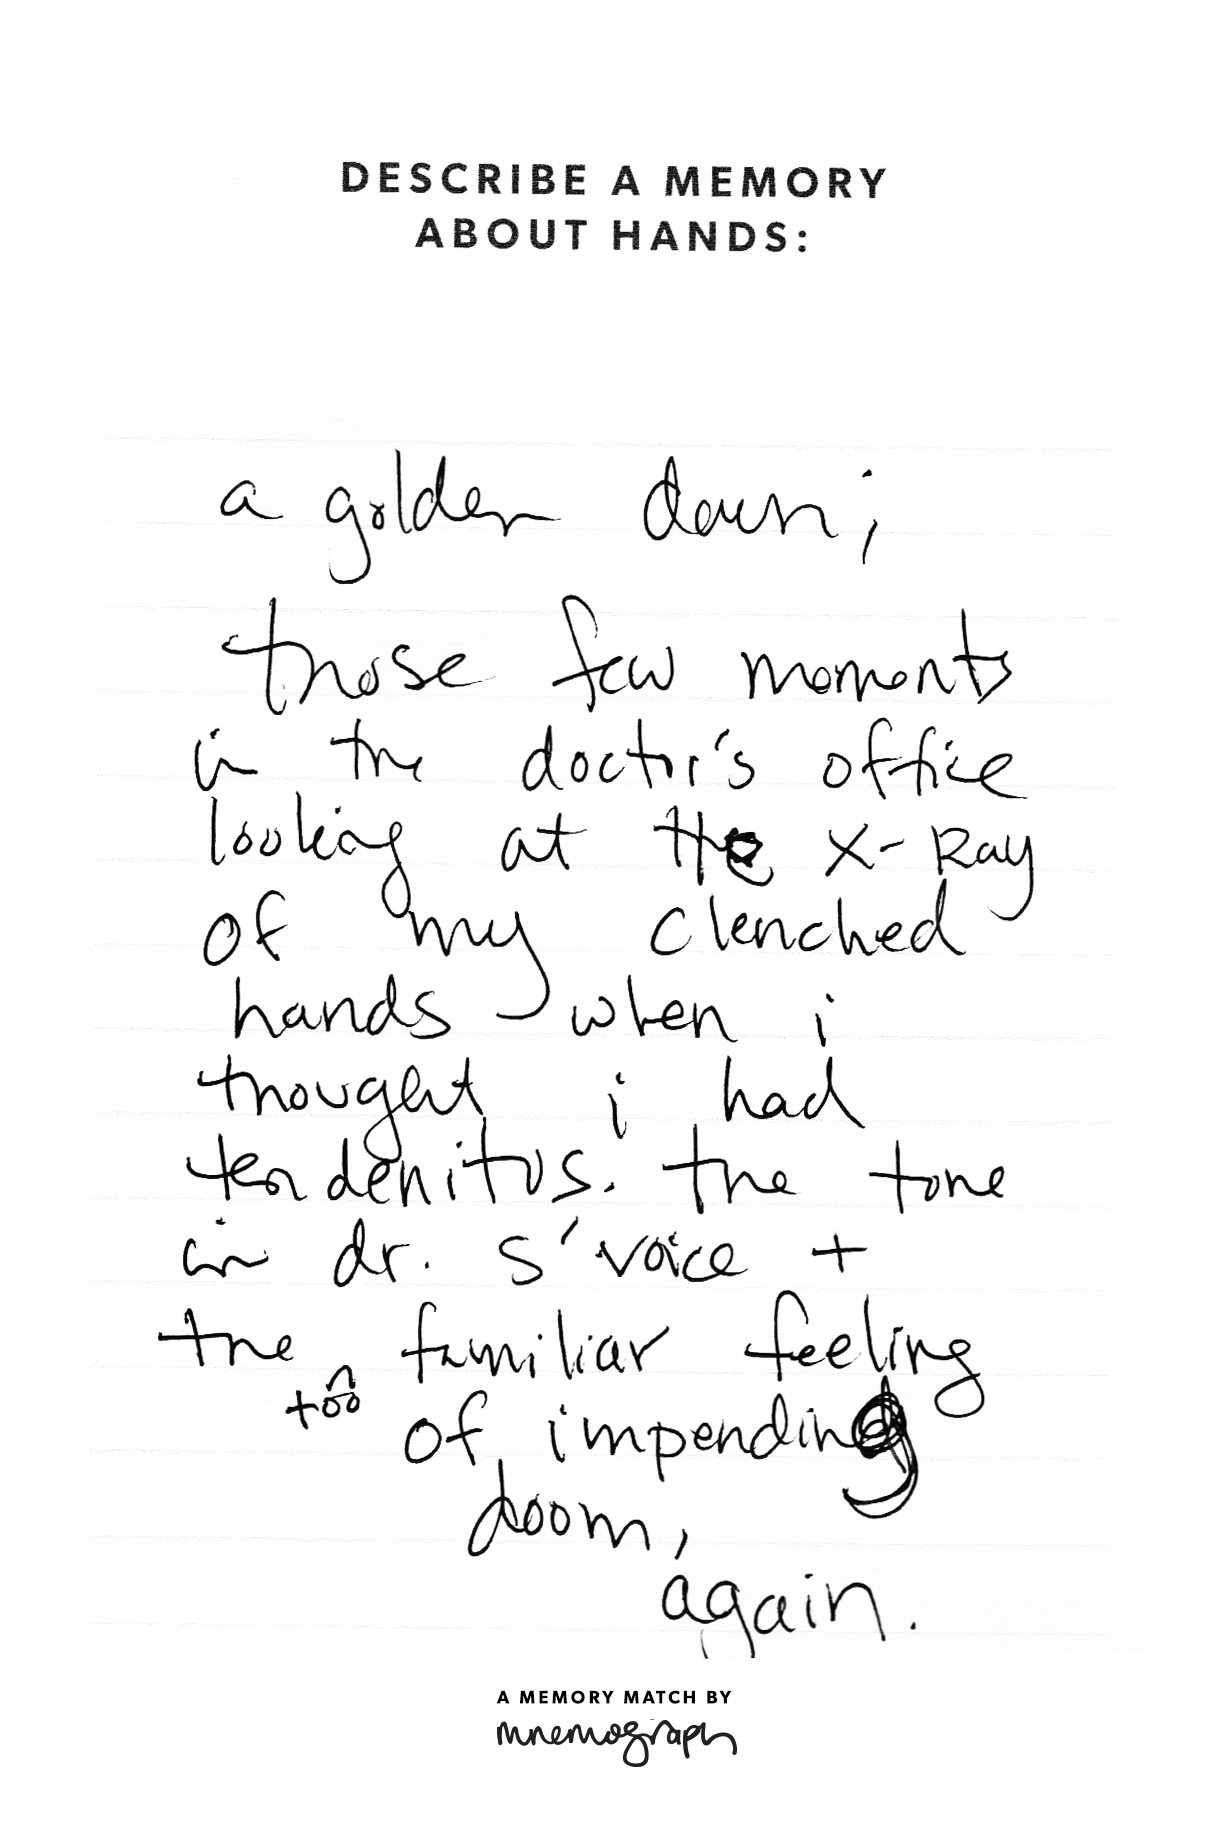 DESCRIBE A MEMORY
ABOUT HANDS:
a golden dawn;
those few moments
in the doctor's office
looking at the x-Ray
of my clenched
hands when i
thought i had
tendenitus. the tone
in dr. s' voice +
the familiar feeling
too
of impending
doom,
again.
A MEMORY MATCH BY
mnemograph